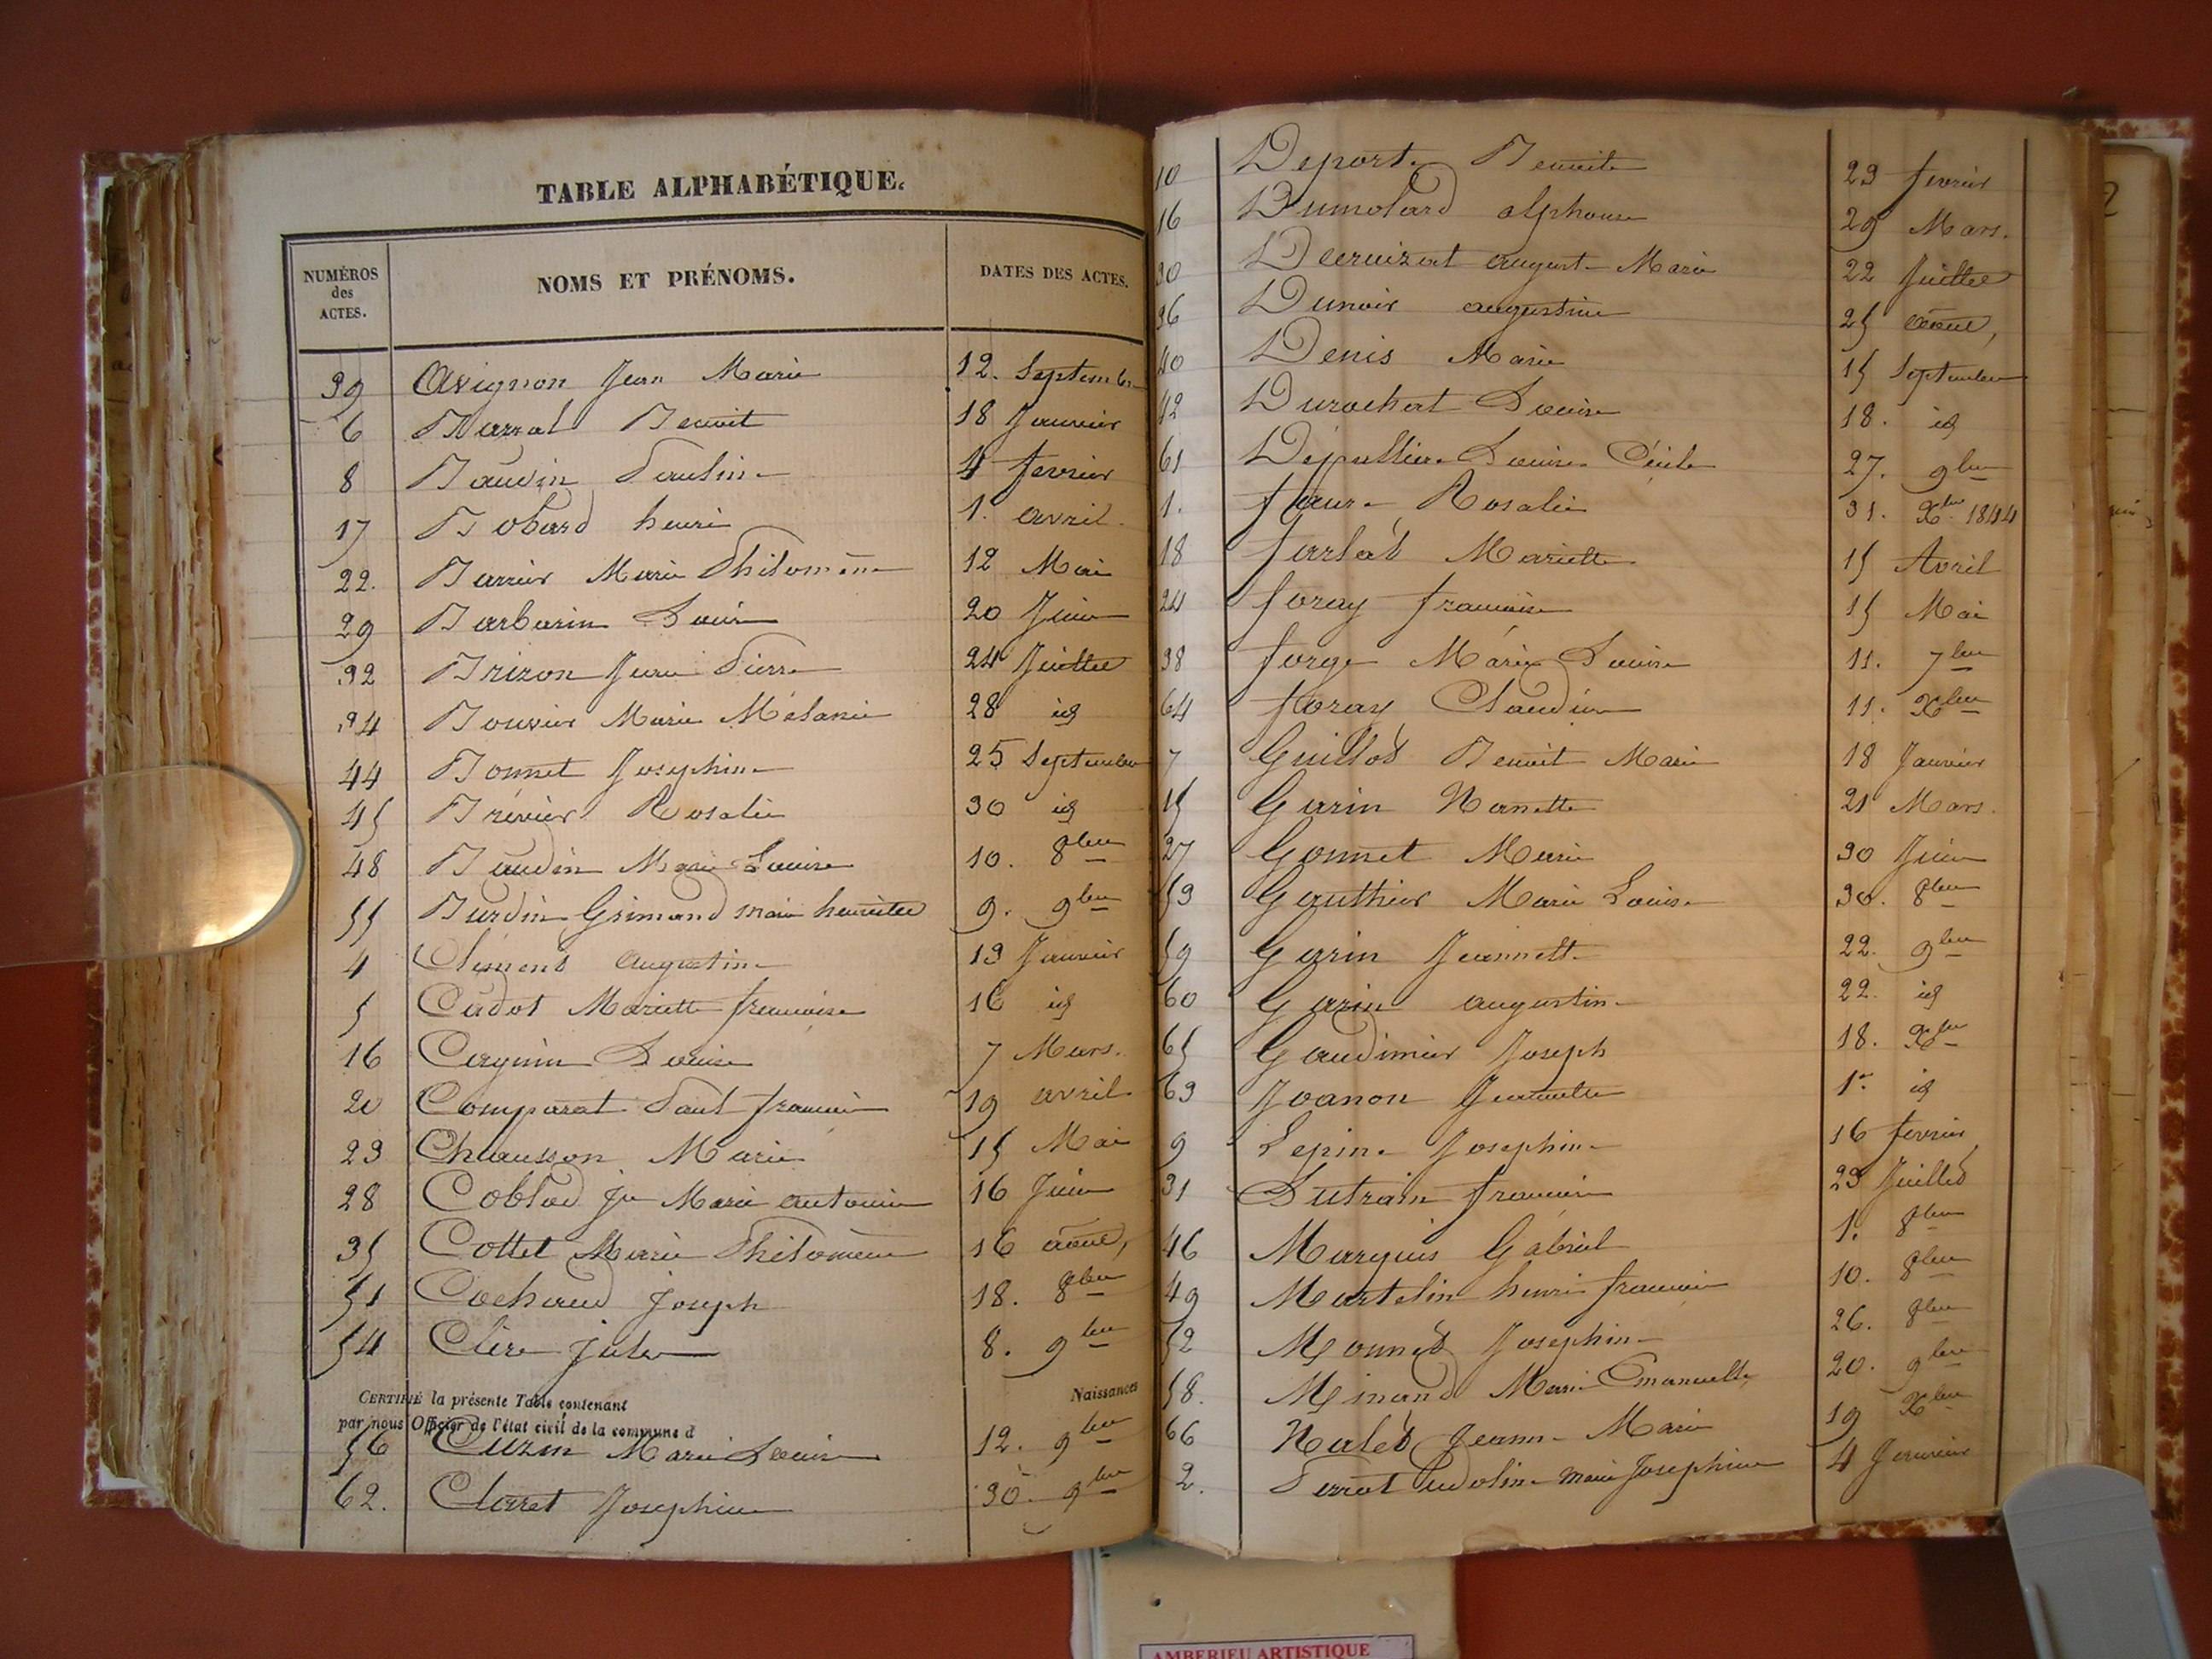 TABLE ALPHABÉTIQUE.
NUMÉROS des ACTES. NOMS ET PRÉNOMS. DATES DES ACTES.
39 Avignon Jean Marie 12. Septembre
6 Barral Benoit 18 Janvier
8 Baudin Pauline 4 fevrier
17 Bobard henri 1. avril.
22. Barrier Marie Philomène 12 Mai
29 Barbarin Louis 20 Juin
32 Brizon Jean Pierre 24 Juillet
34 Bouvier Marie Mélanie 28 id
44 Bonnet Josephine 25 Septembre
45 Brévier Rosalie 30 id
48 Baudin Marie Louise 10. 8bre
55 Burdin Grimand Marie henriette 9. 9bre
4 Clémend Augustine 13 Janvier
5 Cadot Mariette francoise 16 id
16 Carguin Louise 7 Mars.
20 Comparat Paul francois 19 avril.
23 Chausson Marie 15 Mai
28 Coblod Jn Marie antoine 16 Juin
35 Cottet Marie Philomène 16 aout,
51 Cochaud Joseph 18. 8bre
54 Clere Jules 8. 9bre
CERTIFIÉ la présente Table contenant Naissances
par nous Officier de l'état civil de la commune d
56 Cuzin Marie Louise 12. 9bre
62. Claret Josephine 30. 9bre
10 Deport Benoite 23 fevrier
16 Dumolard alphonse 29 Mars.
30 August Marie 22 Juillet
36 Dunoir augustine 25 aout,
40 Denis Marie 15 Septembre
42 Durochat Louise 18. id
61 Dépallier Louise Cécile 27. 9bre
1. faure Rosalie 31. Xbre 1844
18 farlad Mariette 15 Avril
24 foray francoise 15 Mai
38 forge Marie Louise 11. 7bre
64 floray Claudine 11. Xbre
7 Guillod Benoit Marie 18 Janvier
15 Garin Nanette 21 Mars.
27 Gonnet Marie 30 Juin
53 Gauthier Marie Louise 30. 8bre
59 Garin Jeannette 22. 9bre
60 Garin augustine 22. id
65 Gaudimier Joseph 18. Xbre
63 Joanon Jeannette 1er id
9 Lepine Josephine 16 fevrier
31 Lutrain francois 23 Juillet
46 Marquis Gabriel 1. 8bre
49 Martelin henri francois 10. 8bre
52 Monnet Josephine 26. 8bre
58. Minand Marie Emanuelle 20. 9bre
66 Nalet Jeanne Marie 19 Xbre
2. Perrot Marie Josephine 4 Janvier
AMBERIEU ARTISTIQUE